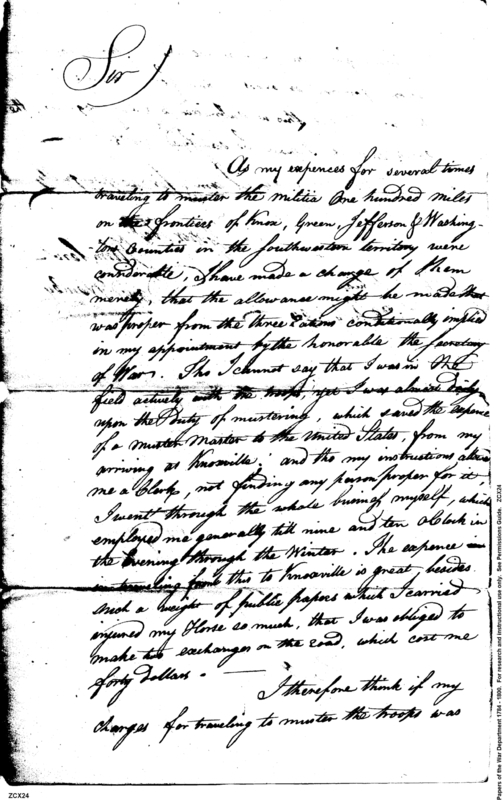 Sir
As my expences for several times
traveling to muster the militia One hundred miles
on the frontiers of Knox, Green, Jefferson & Washing-
ton Counties in the Southwestern territory were
considerable, I have made a charge of them
merely, that the allowance might be made that
was proper from the three Rations conditionally implied
in my appointment by the honorable the Secretary
of War. Tho I cannot say that I was in the
field actively with the troops, yet I was almost
upon the Duty of mustering, which saved the expence
of a muster Master to the United States, from my
arriving at Knoxville; and tho my instructions
me a Clerk, not finding any person proper for it,
I went through the whole business myself, which
employed me generally till nine and ten oClock in
the Evening through the Winter. The expence
in traveling from this to Knoxville is great besides
such a weight of public papers which I carried
injured my Horse so much, that I was obliged to
make two exchanges on the road, which cost me
forty Dollars. —
I therefore think if my
charges for traveling to muster the troops was
ZCX24
Papers of the War Department 1784 - 1800. For research and instructional use only. See Permissions Guide. ZCX24